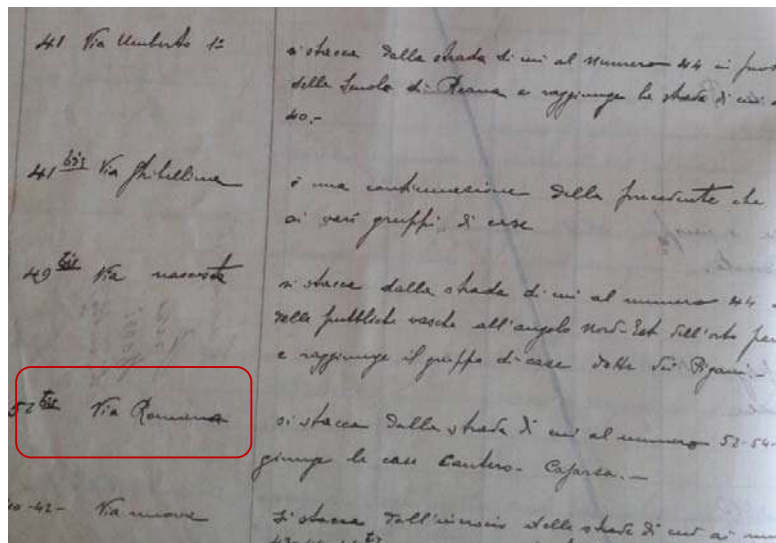 41 Via Umberto 1º si stacca dalla strada di cui al numero 44 in
della Scuola di Reana e raggiunge la strada di cui
40.-
41 bis Via Ghibellina è una continuazione della precedente che
ai vari gruppi di case
49 bis Via nascosta si stacca dalla strada di cui al numero 44
delle pubbliche vasche all'angolo Nord-Est dell'orto
e raggiunge il gruppo di case dette dei
52 bis Via Romana si stacca dalla strada di cui al numero 52-54-
giunge le case Cantero- Cafarsa.-
40-42- Via nuova si stacca dall'incrocio delle strade di cui ai